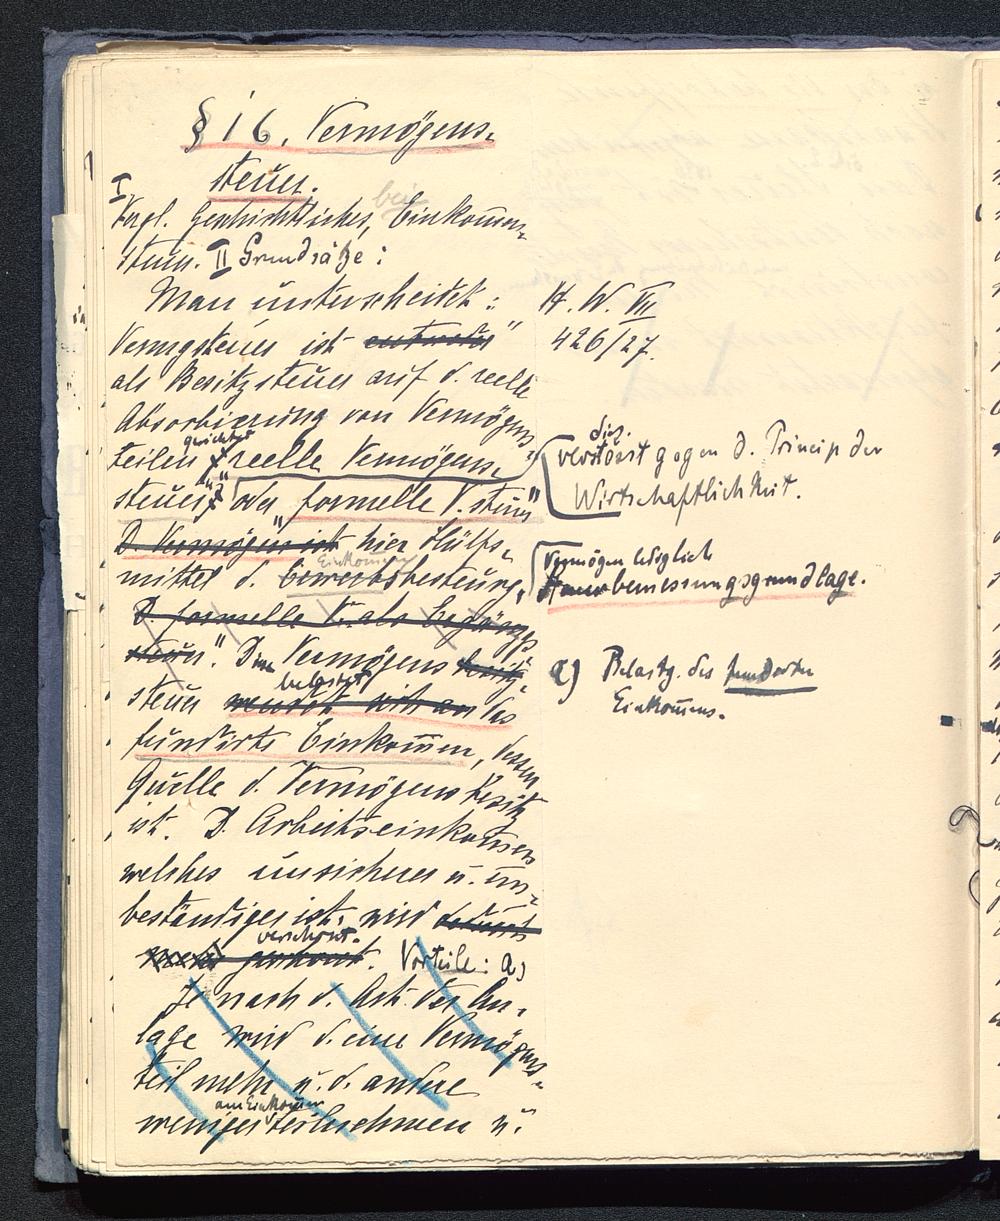 § 16. Vermögens-
steuer.
I
bei
Vergl. Geschichtliches, Einkom̅en-
steuer. II Grundsätze:
Man unterscheidet:
Vermgsteuer ist entweder
als Besitzsteuer auf d. reelle
Absorbierung von Vermögens-
gerichtet
teilen „reelle Vermögens-
steuer“ oder „formelle V. steuer“
D. Vermögen ist hier Hülfs-
Einkommen
mittel d. Erwerbsbesteuerg,
D. formelle V. als Ergänzgs
steuer“. Die Vermögens besitz
belastet
steuer wendet sich an das
fundirte Einkom̅en, dessen
Quelle d. Vermögensbesitz
ist. D. Arbeitseinkom̅en
welches unsicherer u. un-
beständiger ist, wird dadurch
verschont.
geschont. Vorteile: a)
Je nach d. Art der An-
lage wird d. eine Vermögens-
teil mehr u. d. andere
am Einkom̅en
weniger teilnehmen u.
H. W. VII
426/27.
dies.
verstösst gegen d. Princip der
Wirtschaftlichkeit.
Vermögen lediglich
Steuerbemessungsgrundlage.
a) Belastg. des fundierten
Einkom̅ens.